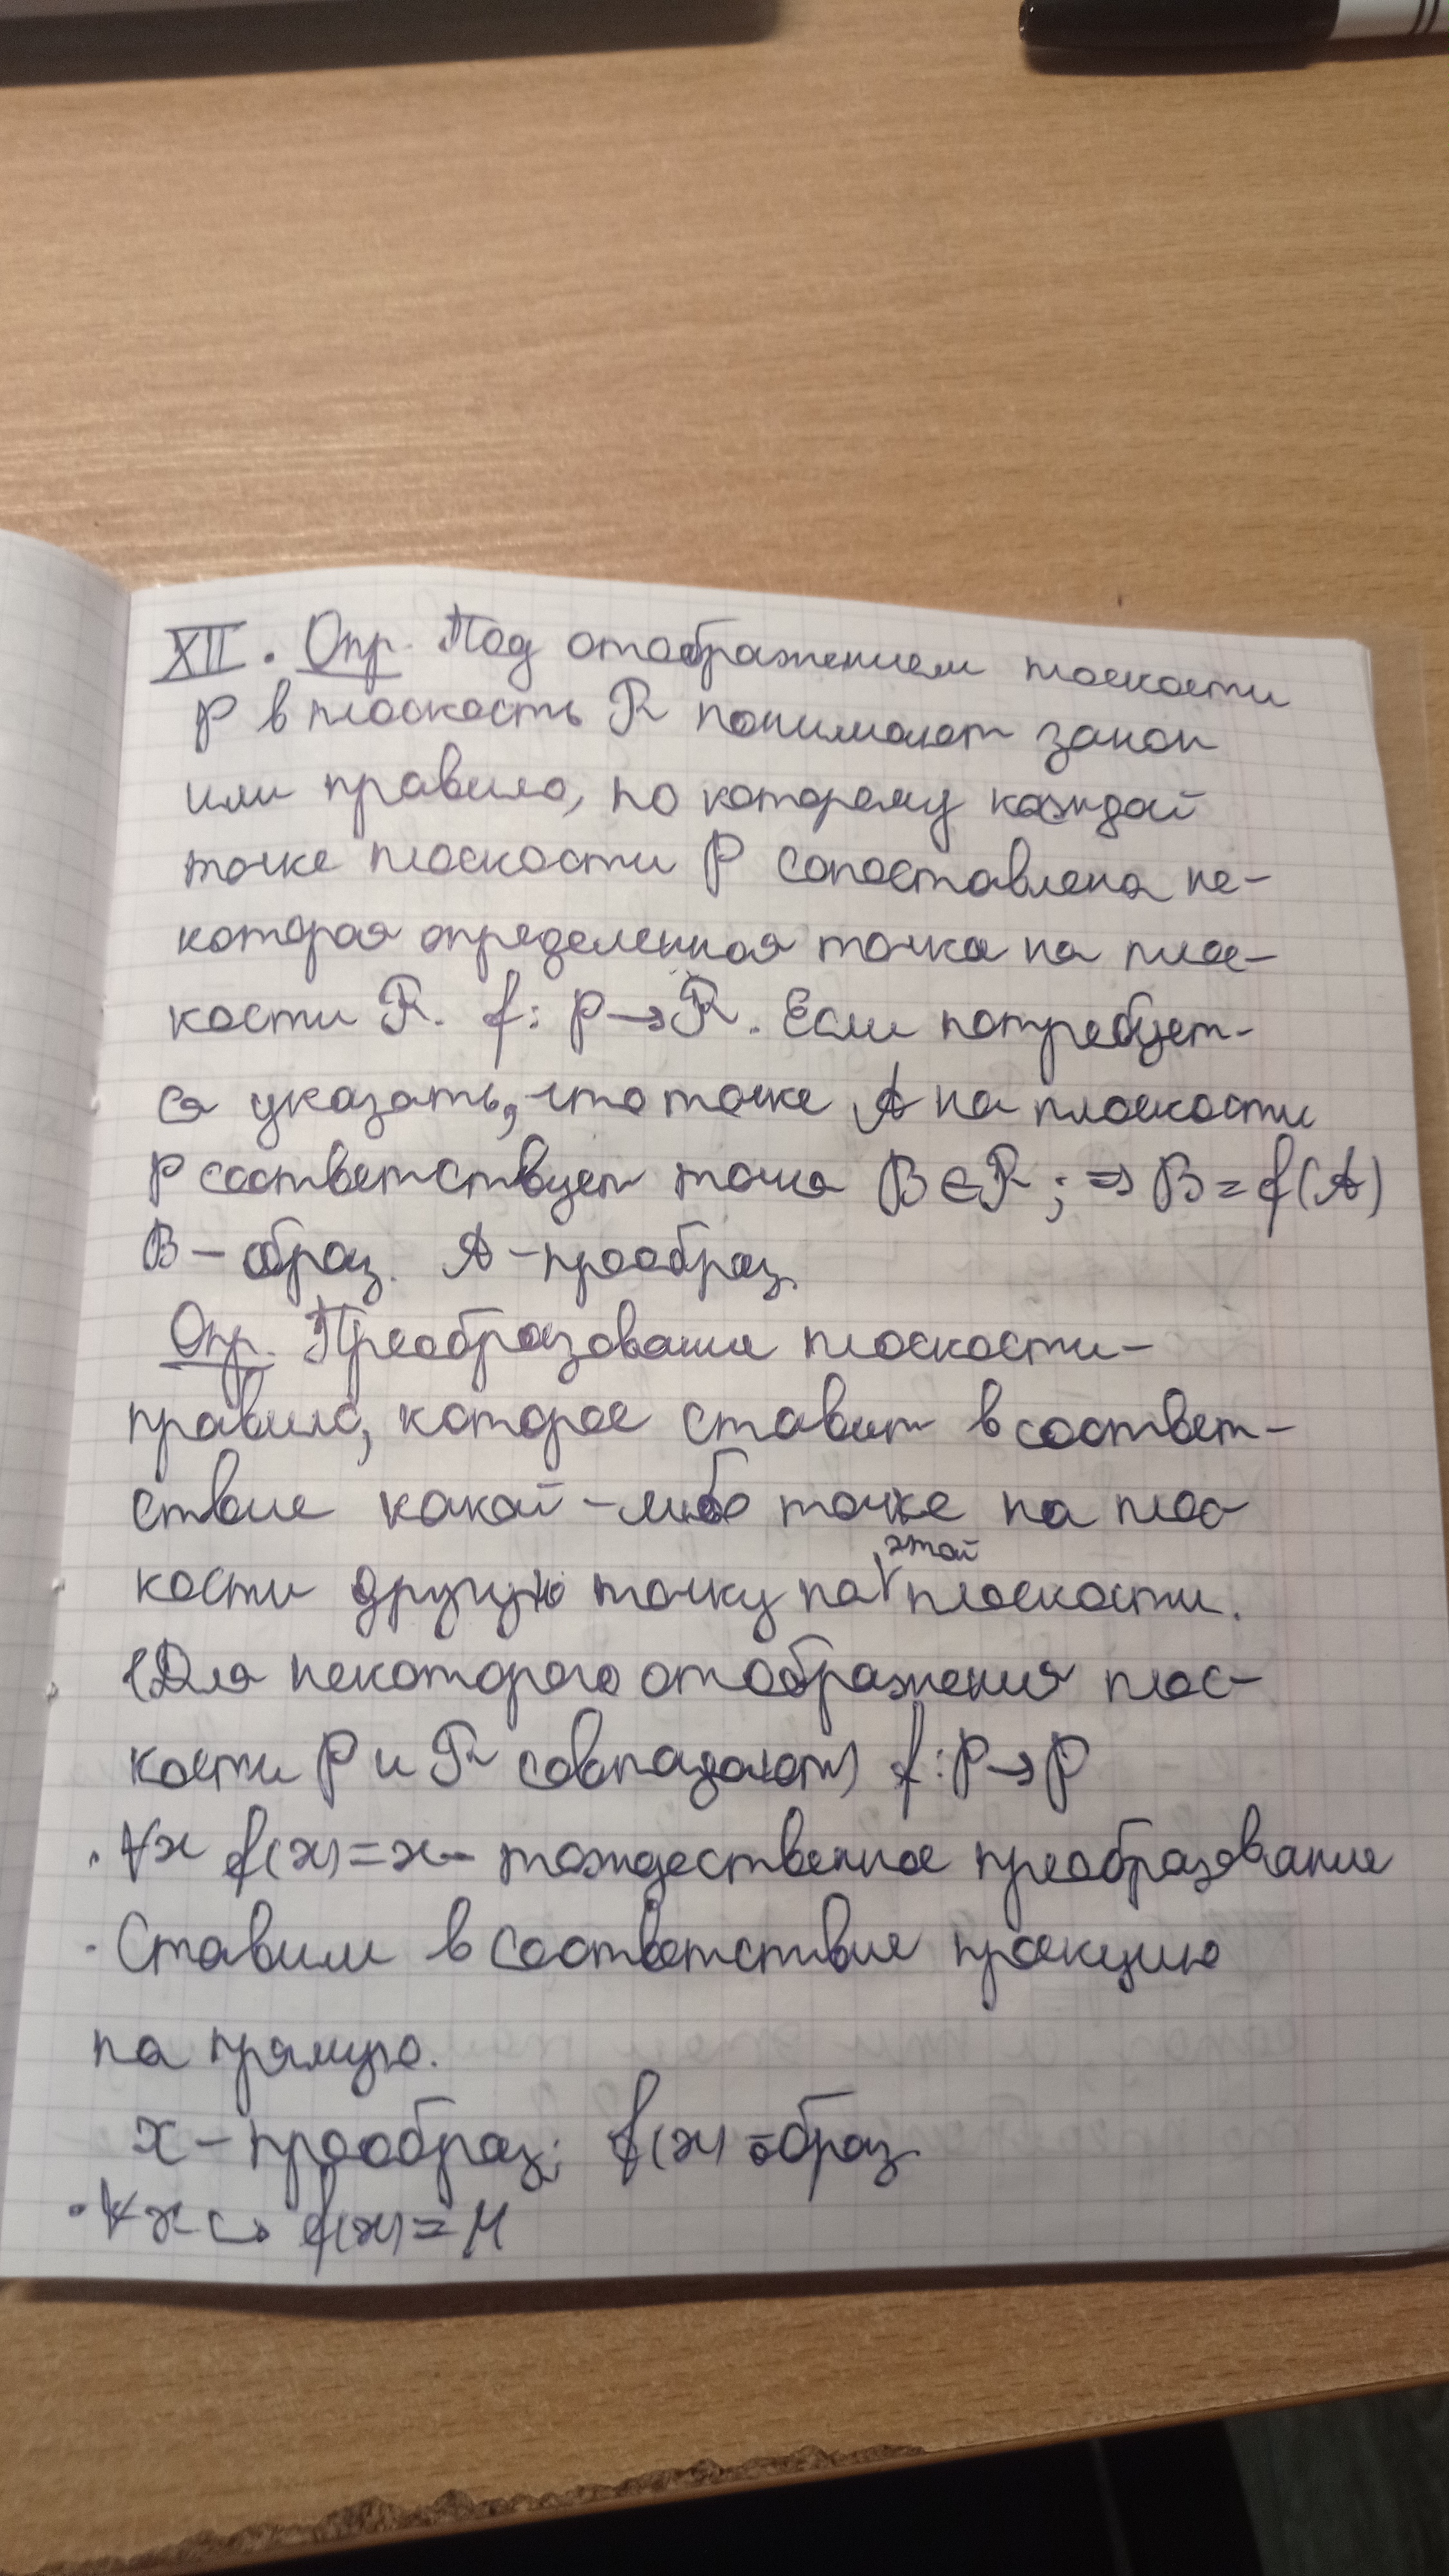 XII. Опр. Под отображением плоскости
P в плоскость R понимают закон
или правило, по которому каждой
точке плоскости P сопоставлена не-
которая определенная точка на плос-
кости R. f: P → R. Если потребует-
ся указать, что точке A на плоскости
P соответствует точка B ∈ R; ⇒ B = f(A)
B – образ. A – прообраз.
Опр. Преобразование плоскости –
правило, которое ставит в соответ-
ствие какой-либо точке на плос
кости другую точку на этой плоскости.
(Для некоторого отображения плос-
кости P и R совпадают) f: P → P
· ∀x f(x) = x – тождественное преобразование
· Ставим в соответствие проекцию
на прямую.
x – прообраз; f(x) – образ
· ∀x ↪ f(x) = M